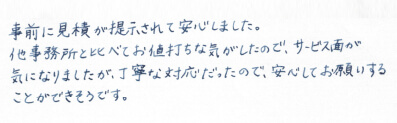 事前に見積が提示されて安心しました。
他事務所と比べてお値打ちな気がしたので、サービス面が
気になりましたが、丁寧な対応だったので、安心してお願いする
ことができそうです。